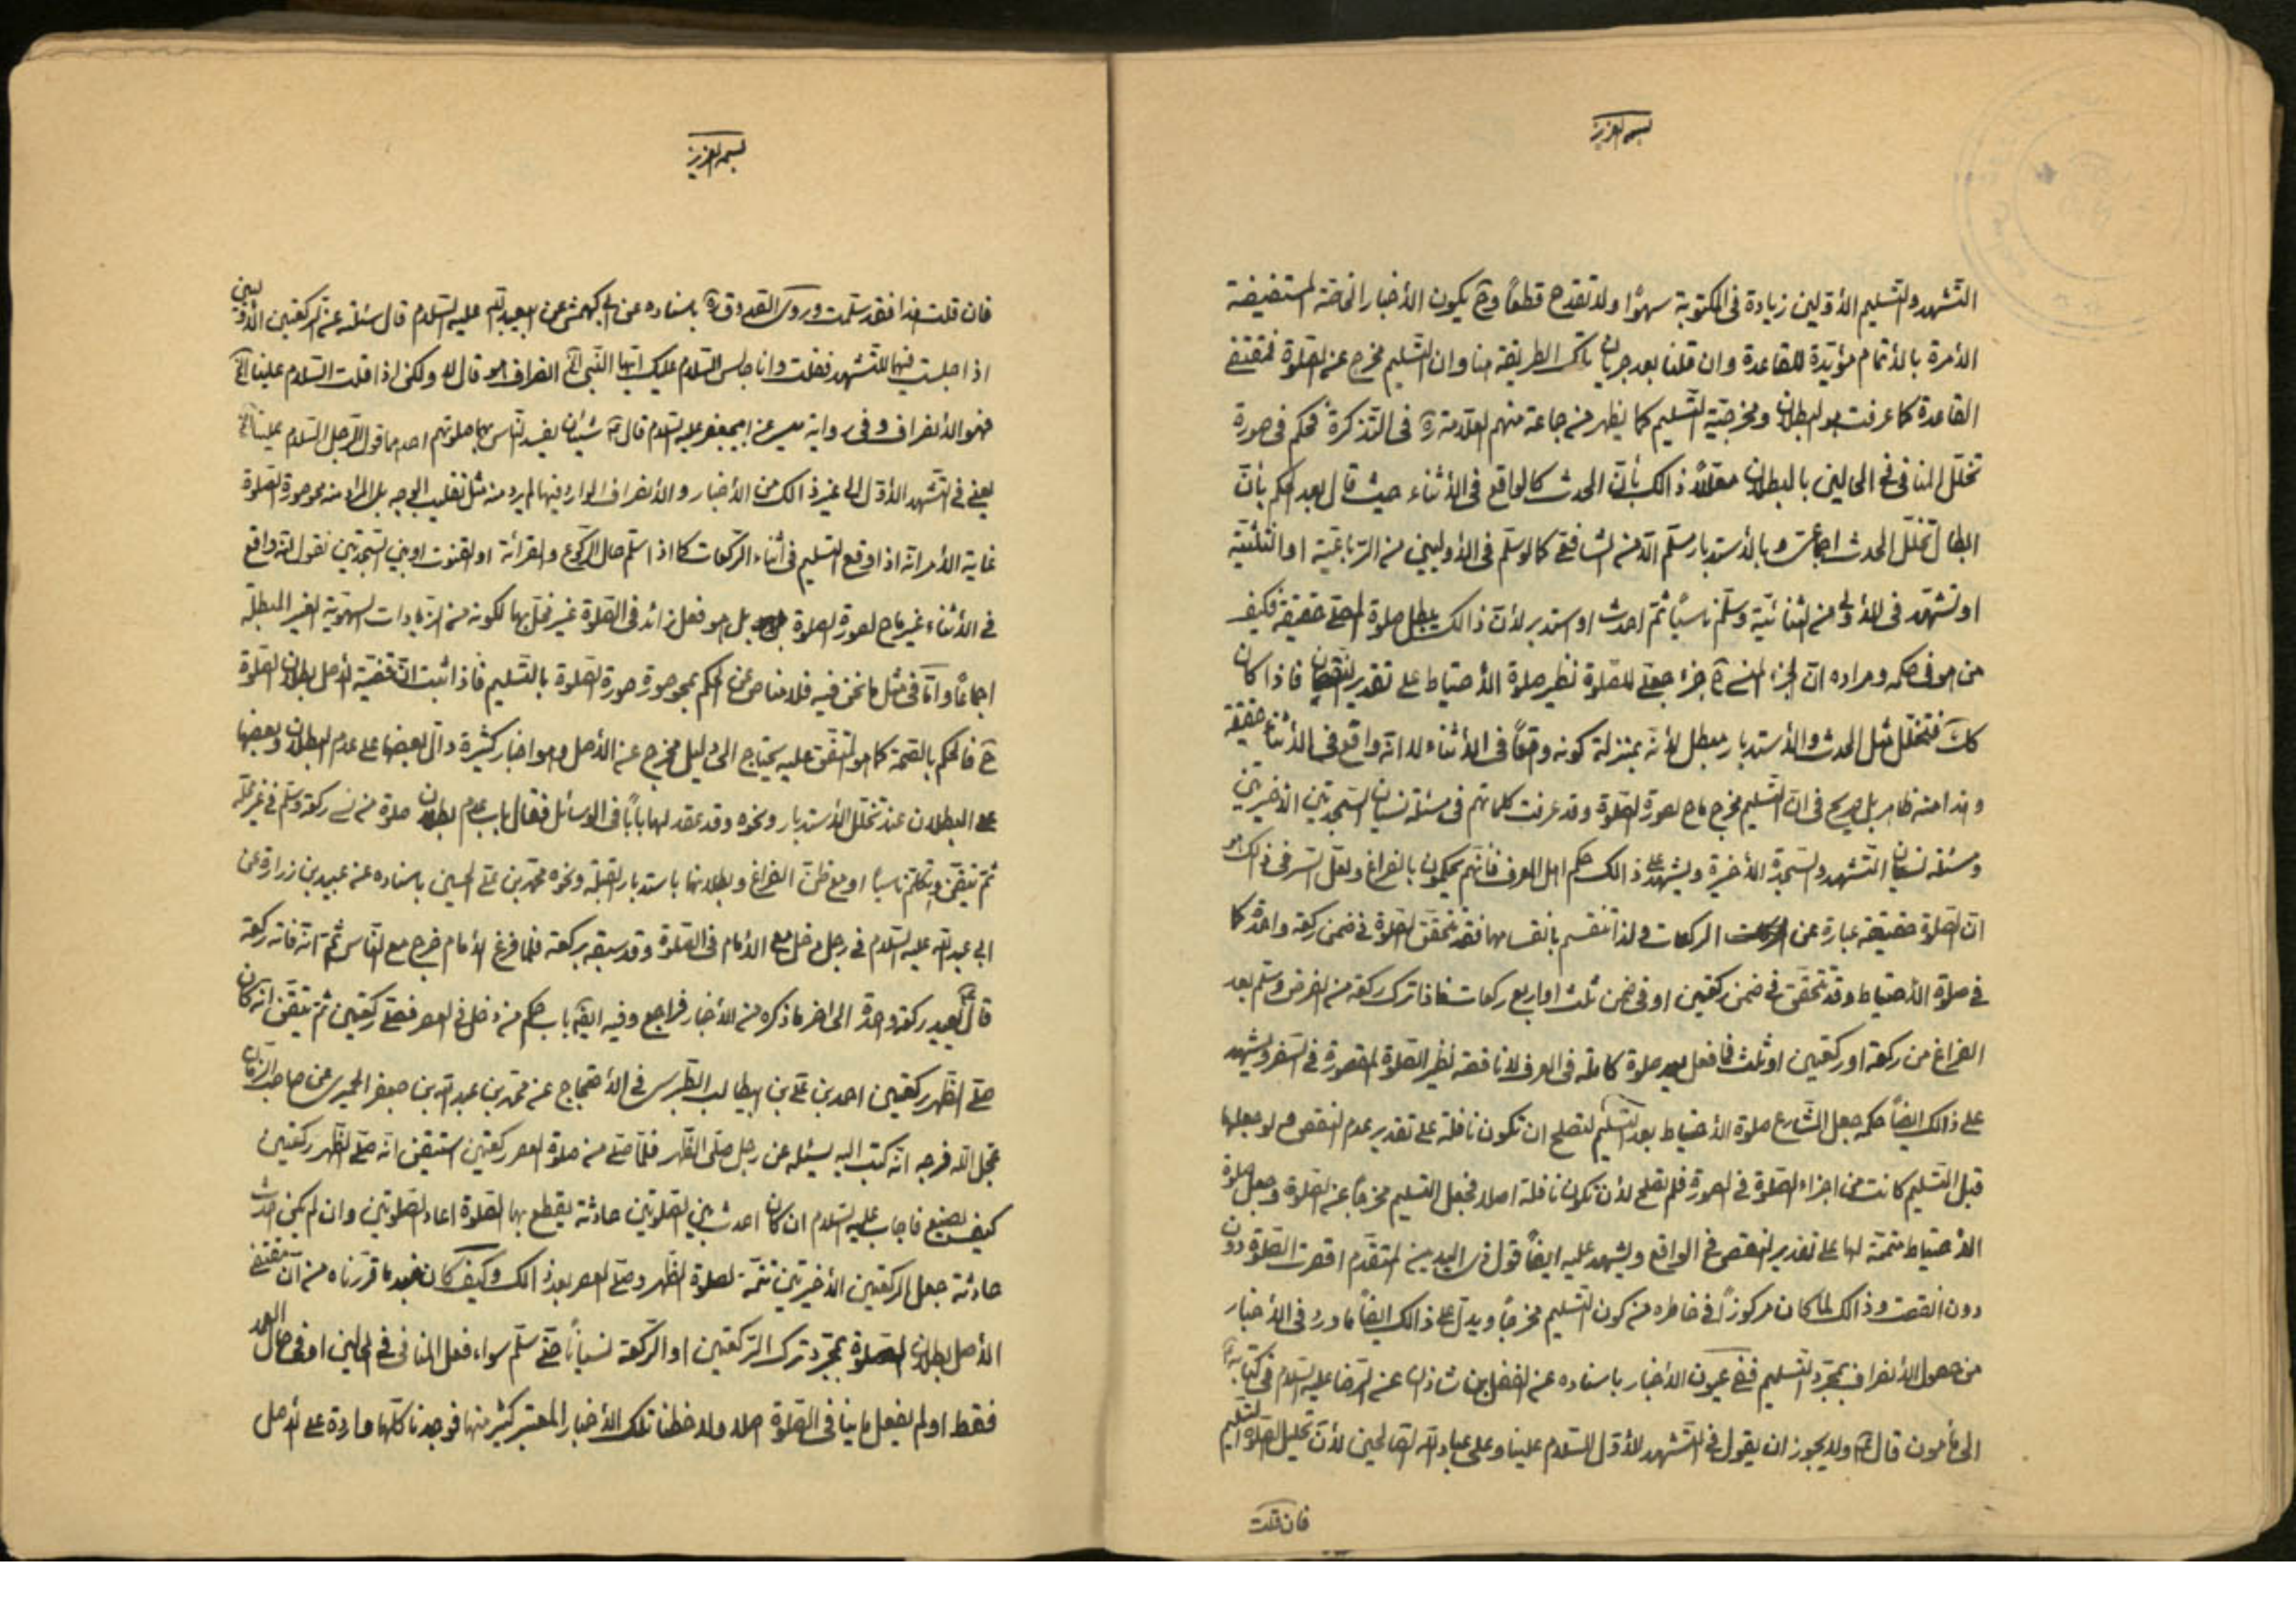 بسمه العزیز
التشهد والتسلیم الأولین زیادة فی المکتوبة سهوًا ولا تقدح قطعًا وح یکون الأخبار الخاصّة المستفیضة
الآمرة بالأتمام مؤیّدة للقاعدة وان قلنا بعد جریان تلک الطریقة هنا وان التسلیم مخرج عن الصّلوة فمقتضی
القاعدة کما عرفت هو البطلان ومخرجیّة التّسلیم کما یظهر من جماعة منهم العلامة ره فی التّذکرة فحکم فی صورة
تخلّل المنافی فی الحالین بالبطلان معلّلاً ذالک بأنّ الحدث کالواقع فی الأثناء حیث قال بعد الحکم بأنّ
ابطال تخلّل الحدث اجماعیّ وبالأستدبار مسلّم الّا من الشّافعی کما لو سلّم فی الأولیین من الرّباعیّة او الثلثیّة
او تشهّد فی الأولی من الثنائیّة وسلّم ناسیًا ثمّ احدث او استدبر لأنّ ذالک یبطل صلوة المصلّی حقیقة فکیف
من هو فی حکمه ومراده انّ الجزء المنسی ح جزء جعلی للصّلوة نظیر صلوة الأحتیاط علی تقدیر النّقصان فاذا کان
کک فتخلّل مثل الحدث والأستدبار مبطل لأنّه بمنزلة کونه واقعًا فی الأثناء لا انّه واقع فی الأثناء حقیقة
وهذا منه ظاهر بل صریح فی انّ التّسلیم مخرج ماح لصورة الصّلوة وقد عرفت کلماتهم فی مسئلة نسیان السّجدتین الأخیرتین
ومسئلة نسیان التّشهد والسّجدة الأخیرة ویشهد علی ذالک حکم اهل العرف فانّهم یحکمون بالفراغ ولعلّ السّر فی ذالک هو
انّ الصّلوة حقیقة عبارة عن الرکعات ولذا تنقسم بانقسامها فقد یتحقّق الصّلوة فی ضمن رکعة واحدة کما
فی صلوة الأحتیاط وقد یتحقّق فی ضمن رکعتین او فی ضمن ثلث او اربع رکعات فاذا ترک رکعة من الفرض وسلّم بعد
الفراغ من رکعة او رکعتین او ثلث فما فعل یعد صلوة کاملة فی العرف لا ناقصة نظیر الصّلوة المقصورة فی السّفر ویشهد
علی ذالک ایضًا حکمة جعل الشّارع صلوة الأحتیاط بعد التّسلیم لتصلح ان تکون نافلة علی تقدیر عدم النقص ولو جعلها
قبل التّسلیم کانت من اجزاء الصّلوة فی الصورة فلم تصلح لأن تکون نافلة اصلا فجعل التّسلیم مخرجًا عن الصّلوة وجعل صلوة
الأحتیاط متمّمة لها علی تقدیر النقص فی الواقع ویشهد علیه ایضًا قول ذی الیدین المتقدّم اقصرت الصّلوة دون
دون انقصت وذالک لما کان مرکوزًا فی خاطره من کون التّسلیم مخرجًا ویدلّ علی ذالک ایضًا ما ورد فی الأخبار
من حصول الأنصراف بمجرّد التّسلیم ففی عیون الأخبار باسناده عن الفضل بن شاذان عن الرّضا علیه السّلام فی کتابه
الی مأمون قال ع ولا یجوز ان یقول فی التّشهد الأوّل السّلام علینا وعلی عباد الله الصّالحین لأنّ تحلیل الصّلوة التسلیم
فان قلت
بسمه العزیز
فان قلت هذا فقد سلّمت وروی الصّدوق ره باسناده عن ابی کهمش عن ابیعبدالله علیه السّلام قال سئلته عن الرکعتین الأولیین
اذا جلست فیهما للتّشهد فقلت وانا جالس السّلام علیک ایّها النّبی الخ انصراف هو قال لا ولکن اذا قلت السّلام علینا الخ
فهو الأنصراف وفی روایة میسر عن ابیجعفر علیه السّلام قال ع شیئان یفسد النّاس بهما صلوتهم احدهما قول الرّجل السّلام علینا الخ
یعنی فی التّشهد الأوّل الی غیر ذالک من الأخبار والأنصراف الوارد فیها لم یرد منه مثل تقلیب الوجه بل المراد منه محو صورة الصّلوة
غایة الأمر انّه اذا وقع التّسلیم فی أثناء الرّکعات کما اذا سلّم حال الرّکوع والقرائة او القنوت او بین السّجدتین نقول انّه واقع
فی الأثناء غیر ماح لصورة الصلوة بل هو فعل زائد فی الصّلوة غیر مخلّ بها لکونه من الزّیادات السّهویّة الغیر المبطلة
اجماعًا وامّا فی مثل ما نحن فیه فلا مناص عن الحکم بمحو صورة الصّلوة بالتّسلیم فاذا ثبت انّ مقتضیة الأصل بطلان الصّلوة
ح فالحکم بالصّحة کما هو المتّفق علیه یحتاج الی دلیل مخرج عن الأصل وهو اخبار کثیرة دالّ بعضها علی عدم البطلان وبعضها
علی البطلان عند تخلّل الأستدبار ونحوه وقد عقد لها بابًا فی الوسائل فقال باب عدم بطلان صلوة من نسی رکعة وسلّم فی غیر محلّه
ثمّ تیقّن وتکلّم ناسیًا او مع ظنّ الفراغ وبطلانها باستدبار القبلة ونحوه محمّد بن علی الحسین باسناده عن عبید بن زرارة عن
ابی عبد الله علیه السّلام فی رجل دخل مع الأمام فی الصّلوة وقد سبقه برکعة فلمّا فرغ الأمام خرج مع النّاس ثمّ انّه فاته رکعة
قال ع یعید رکعة واحدة الی اخر ما ذکره من الأخبار فراجع وفیه ایضًا باب حکم من دخل فی العصر فصلّی رکعتین ثمّ تیقّن انّه کان
صلّی الظّهر رکعتین احمد بن علی بن ابیطالب الطّبرسی فی الأحتجاج عن محمّد بن عبد الله بن جعفر الحمیری عن صاحب الزّمان
عجّل الله فرجه انّه کتب الیه یسئله عن رجل صلّی الظّهر فلمّا صلّی من صلوة العصر رکعتین استیقن انّه صلّی الظّهر رکعتین
کیف یصنع فاجاب علیه السّلام ان کان احدث بین الصّلوتین حادثة یقطع بها الصّلوة اعاد الصّلوتین وان لم یکن احدث
حادثة جعل الرکعتین الأخیرتین تتمّة لصلوة الظّهر وصلّی العصر بعد ذالک وکیف کان فبعد ما قرّرناه من انّ مقتضی
الأصل بطلان الصّلوة بمجرّد ترک الرّکعتین او الرّکعة نسیانًا حتّی سلّم سواء فعل المنافی فی الحالین او فی حال العمد
فقط او لم یفعل ما ینافی الصّلوة اصلا ولاحظنا تلک الأخبار المعتبر کثیر منها فوجدناها کلّها واردة علی الأصل